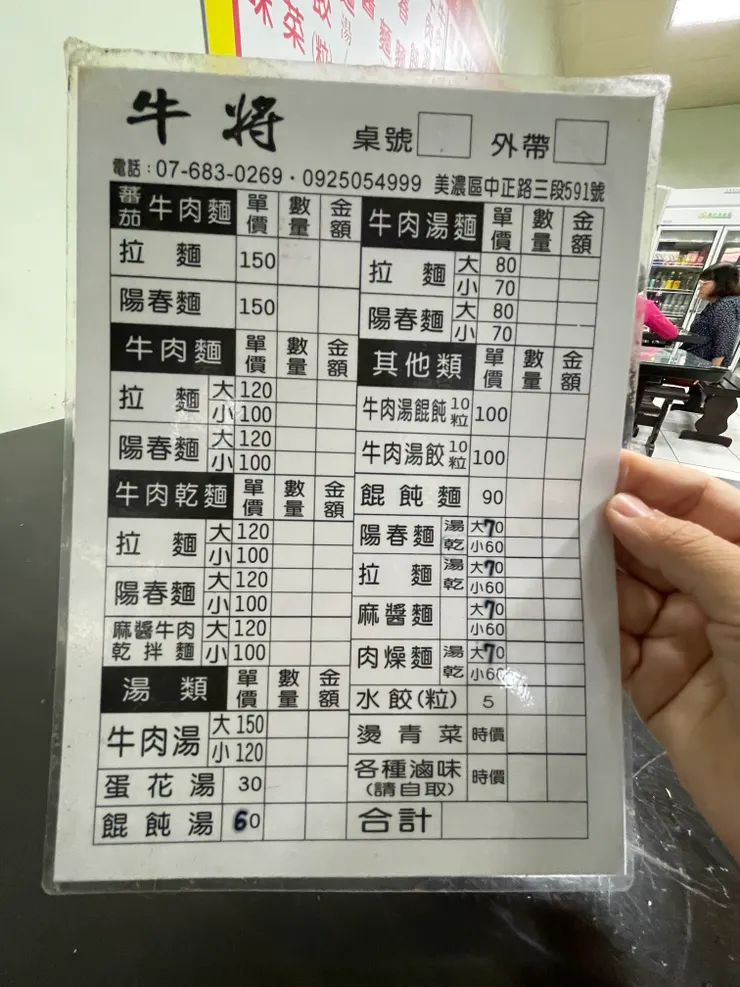 牛將 桌號 外帶
電話：07-683-0269・0925054999 美濃區中正路三段591號
蕃茄牛肉麵 單價 數量 金額
拉麵 150
陽春麵 150
牛肉麵 單價 數量 金額
拉麵 大 120
小 100
陽春麵 大 120
小 100
牛肉乾麵 單價 數量 金額
拉麵 大 120
小 100
陽春麵 大 120
小 100
麻醬牛肉乾拌麵 大 120
小 100
湯類 單價 數量 金額
牛肉湯 大 150
小 120
蛋花湯 30
餛飩湯 60
牛肉湯麵 單價 數量 金額
拉麵 大 80
小 70
陽春麵 大 80
小 70
其他類 單價 數量 金額
牛肉湯餛飩 10粒 100
牛肉湯餃 10粒 100
餛飩麵 90
陽春麵 湯乾 大70
小60
拉麵 湯乾 大70
小60
麻醬麵 大70
小60
肉燥麵 湯乾 大70
小60
水餃(粒) 5
燙青菜 時價
各種滷味(請自取) 時價
合計